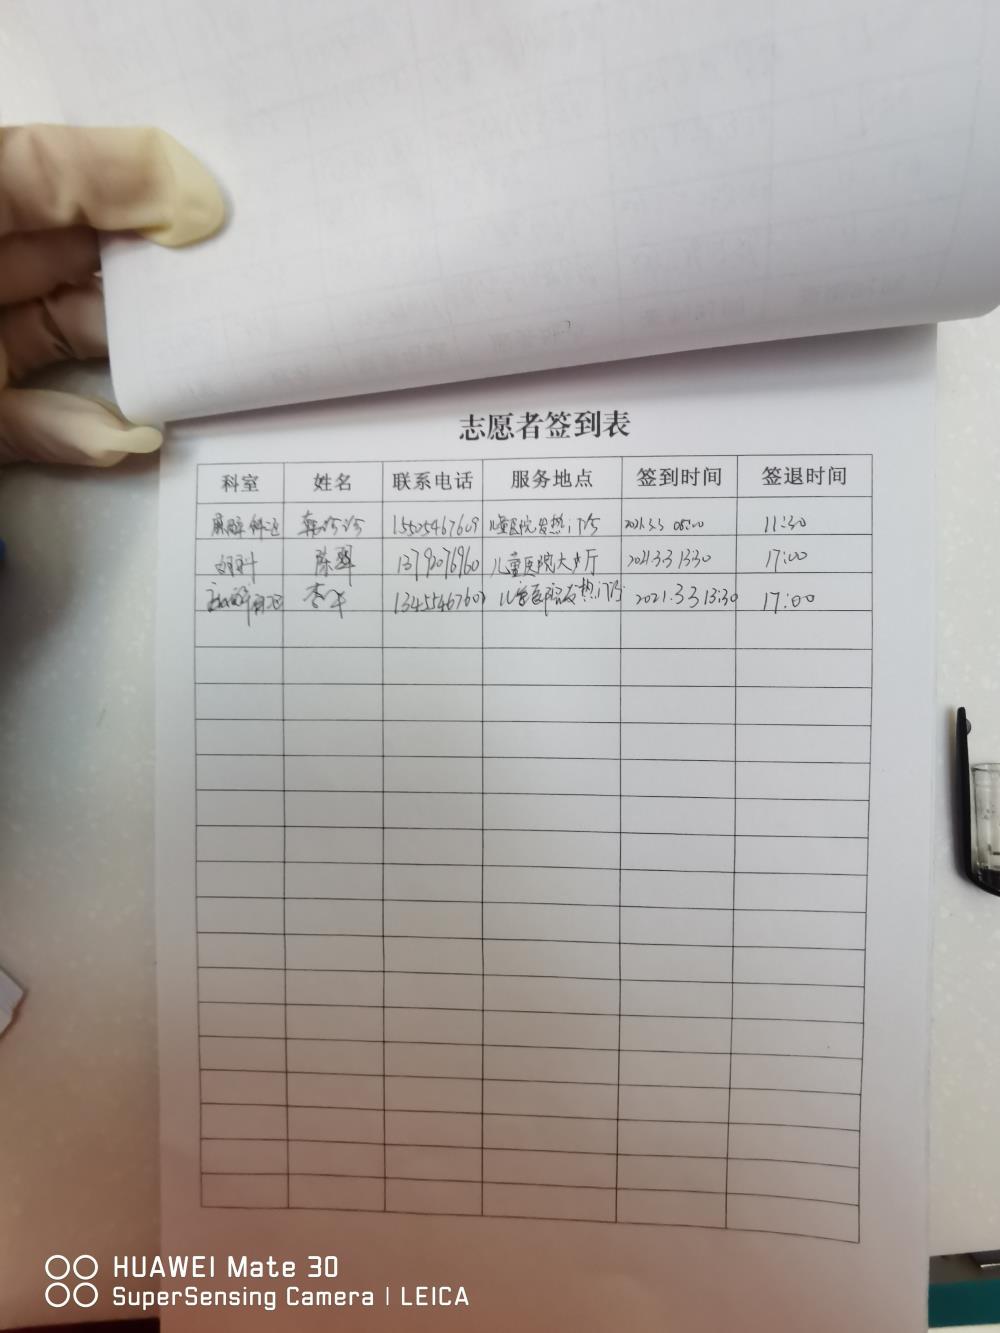 志愿者签到表
科室 姓名 联系电话 服务地点 签到时间 签退时间
麻醉科 韩 15505467609 儿童医院发热门诊 2021.3.3 08:00 11:30
陈翠 13792076960 儿童医院大厅 2021.3.3 13:30 17:00
李军 儿童医院发热门诊 2021.3.3 13:30 17:00
HUAWEI Mate 30
SuperSensing Camera | LEICA